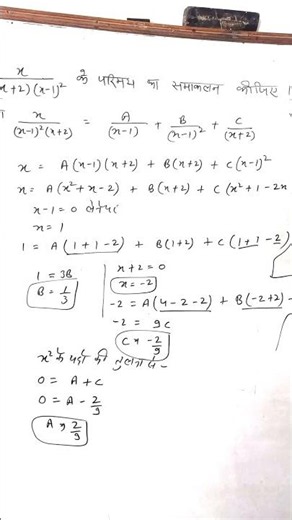 x/(x+2)(x-1)² के परिमेय का समाकलन कीजिए।
x/(x-1)²(x+2) = A/(x-1) + B/(x-1)² + C/(x+2)
x = A(x-1)(x+2) + B(x+2) + C(x-1)²
x = A(x²+x-2) + B(x+2) + C(x²+1-2x
x-1=0 लेने पर
x=1
1 = A(1+1-2) + B(1+2) + C(1+1-2)
1 = 3B
B = 1/3
x+2=0
x=-2
-2 = A(4-2-2) + B(-2+2) -
-2 = 9C
C = -2/9
x² के पदों की तुलना से -
0 = A+C
0 = A - 2/9
A = 2/9